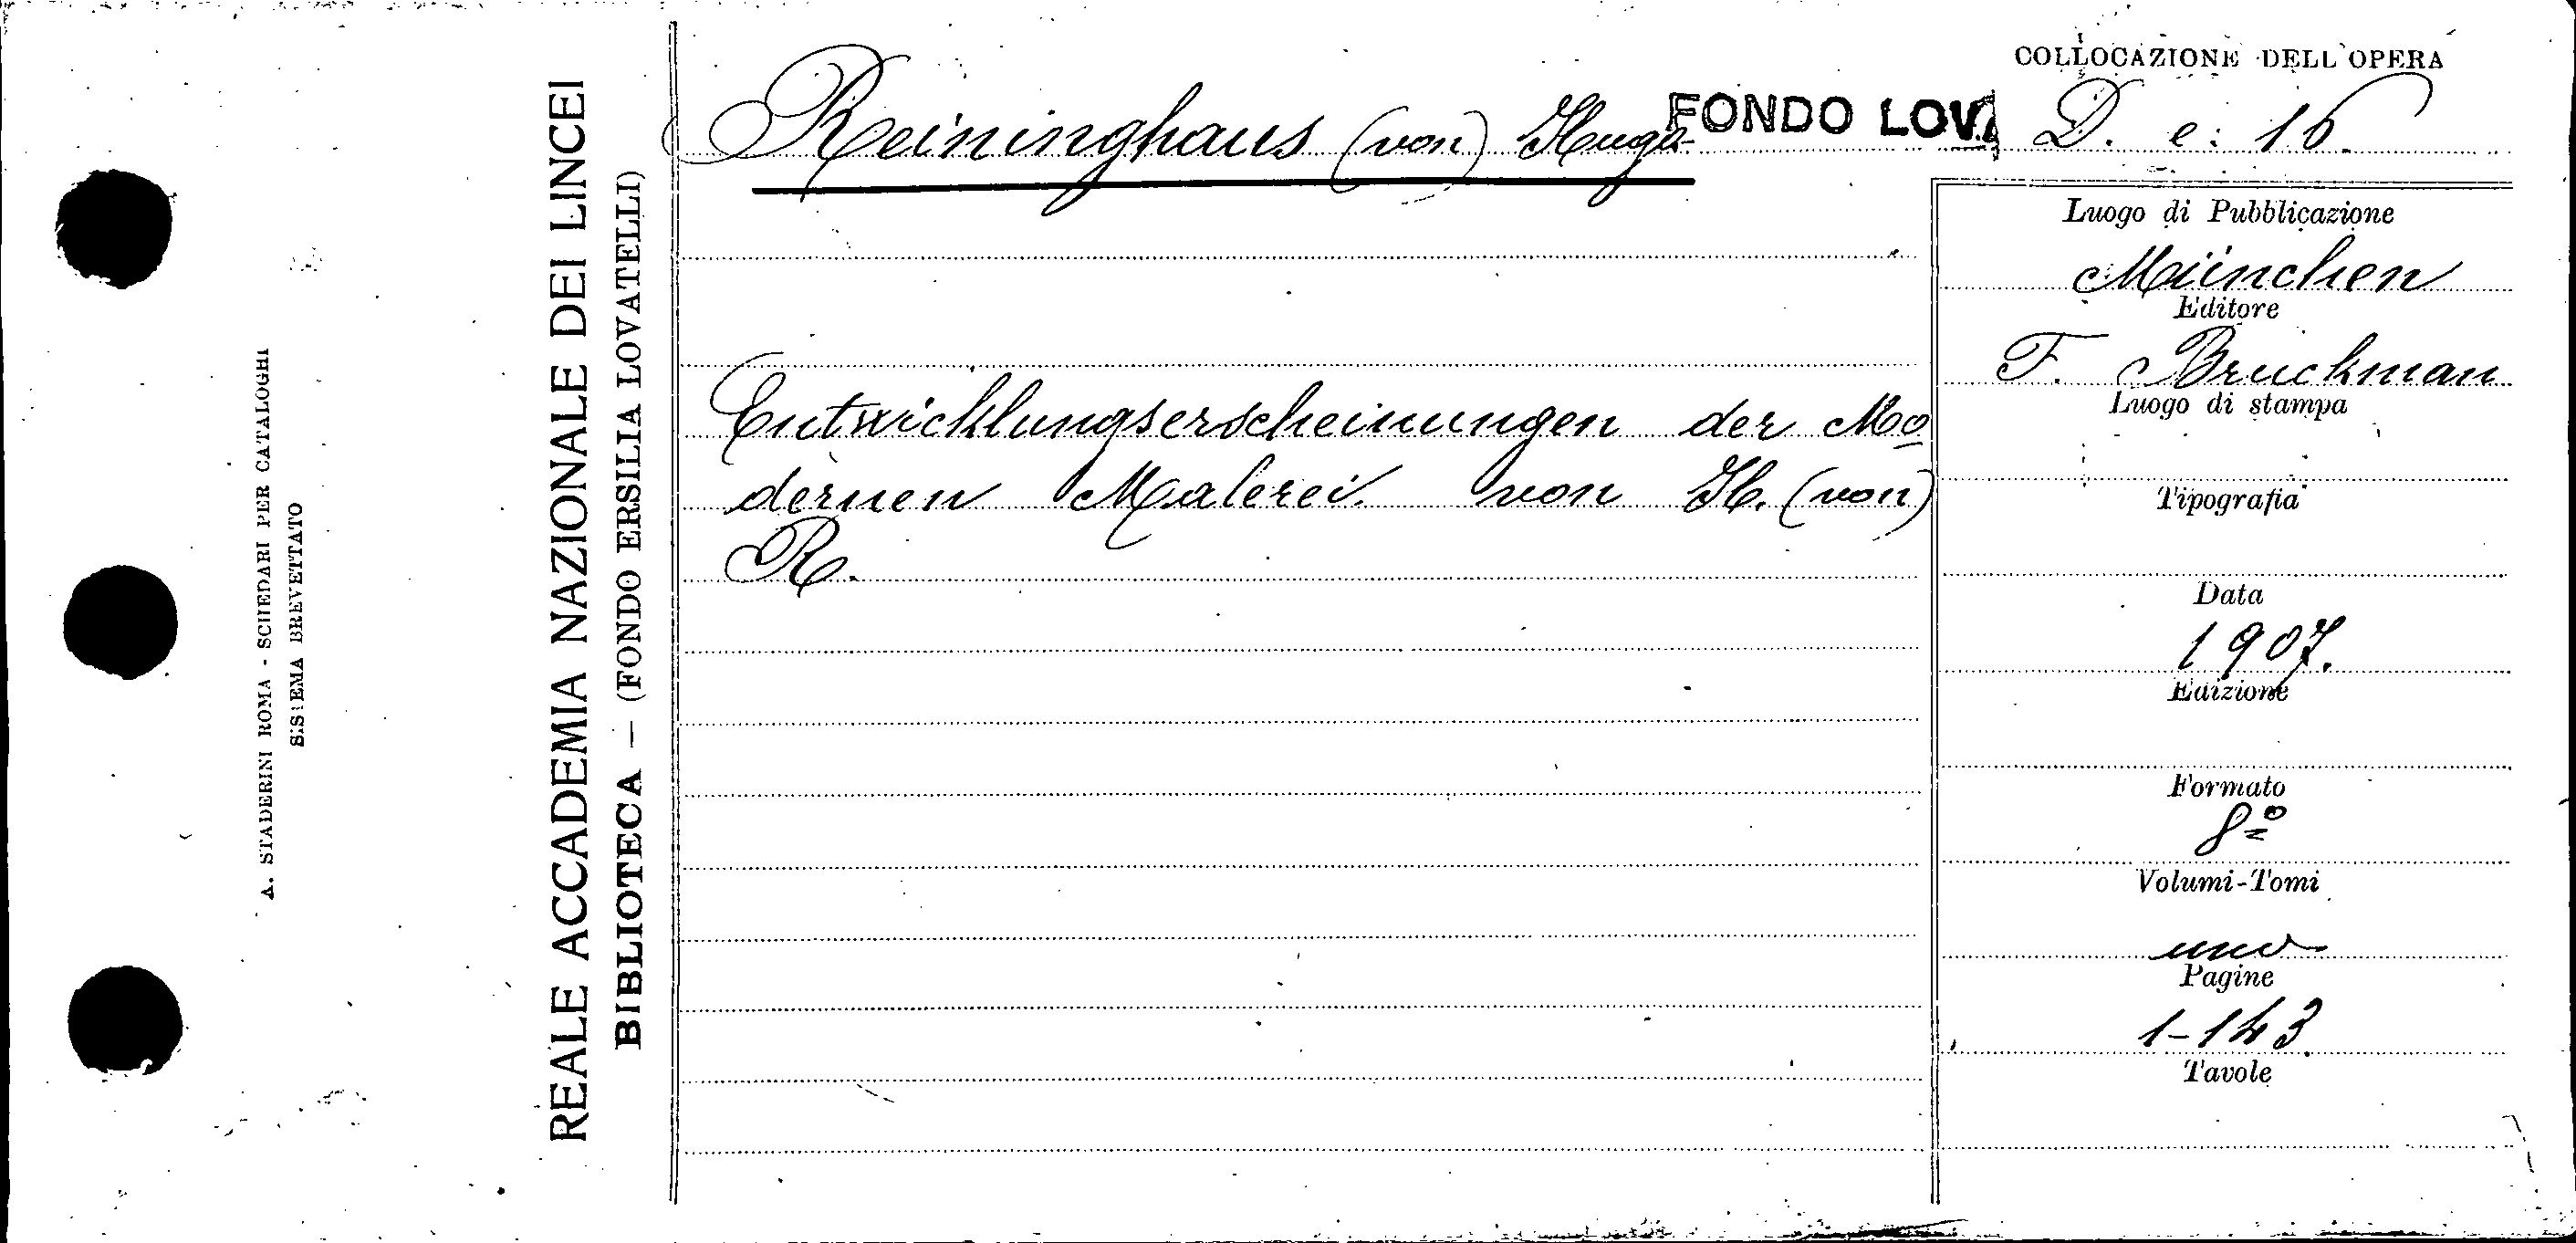 A. STADERINI ROMA - SCHEDARI PER CATALOGHI
SISTEMA BREVETTATO
REALE ACCADEMIA NAZIONALE DEI LINCEI
BIBLIOTECA — (FONDO ERSILIA LOVATELLI)
Reininghaus (von) Hugo
FONDO LOV.
COLLOCAZIONE DELL'OPERA
D. e. 16.
Entwicklungserscheinungen der Mo
dernen Malerei. von H. (von)
R.
Luogo di Pubblicazione
München
Editore
F. Bruckman
Luogo di stampa
Tipografia
Data
1907.
Edizione
Formato
8º
Volumi-Tomi
uno
Pagine
1-143
Tavole